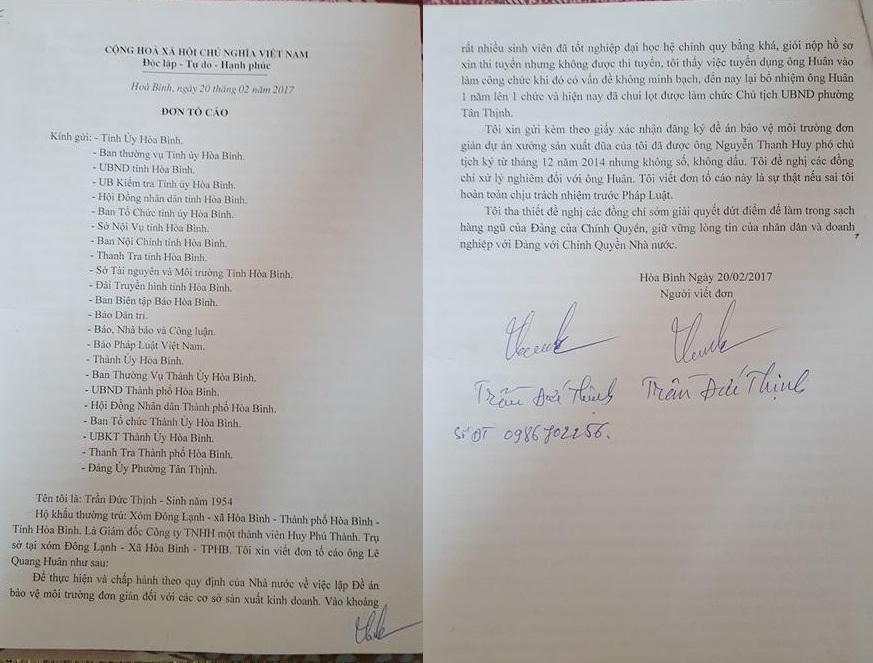 CỘNG HOÀ XÃ HỘI CHỦ NGHĨA VIỆT NAM
Độc lập - Tự do - Hạnh phúc
Hoà Bình, ngày 20 tháng 02 năm 2017
ĐƠN TỐ CÁO
Kính gửi: - Tỉnh Ủy Hòa Bình.
- Ban thường vụ Tỉnh ủy Hòa Bình.
- UBND tỉnh Hòa Bình.
- UB Kiểm tra Tỉnh ủy Hòa Bình.
- Hội Đồng nhân dân tỉnh Hòa Bình.
- Ban Tổ Chức tỉnh ủy Hòa Bình.
- Sở Nội Vụ tỉnh Hòa Bình.
- Ban Nội Chính tỉnh Hòa Bình.
- Thanh Tra tỉnh Hòa Bình.
- Sở Tài nguyên và Môi trường Tỉnh Hòa Bình.
- Đài Truyền hình tỉnh Hòa Bình.
- Ban Biên tập Báo Hòa Bình.
- Báo Dân trí.
- Báo, Nhà báo và Công luận.
- Báo Pháp Luật Việt Nam.
- Thành Ủy Hòa Bình.
- Ban Thường Vụ Thành Ủy Hòa Bình.
- UBND Thành phố Hòa Bình.
- Hội Đồng Nhân dân Thành phố Hòa Bình.
- Ban Tổ chức Thành Ủy Hòa Bình.
- UBKT Thành Ủy Hòa Bình.
- Thanh Tra Thành phố Hòa Bình.
- Đảng Ủy Phường Tân Thịnh.
Tên tôi là: Trần Đức Thịnh - Sinh năm 1954
Hộ khẩu thường trú: Xóm Đông Lạnh - xã Hòa Bình - Thành phố Hòa Bình -
Tỉnh Hòa Bình. Là Giám đốc Công ty TNHH một thành viên Huy Phú Thành. Trụ
sở tại xóm Đông Lạnh - Xã Hòa Bình - TPHB. Tôi xin viết đơn tố cáo ông Lê
Quang Huân như sau:
Để thực hiện và chấp hành theo quy định của Nhà nước về việc lập Đề án
bảo vệ môi trường đơn giản đối với các cơ sở sản xuất kinh doanh. Vào khoảng
rất nhiều sinh viên đã tốt nghiệp đại học hệ chính quy bằng khá, giỏi nộp hồ sơ
xin thi tuyển nhưng không được thi tuyển, tôi thấy việc tuyển dụng ông Huân vào
làm công chức khi đó có vấn đề không minh bạch, đến nay lại bổ nhiệm ông Huân
1 năm lên 1 chức và hiện nay đã chui lọt được làm chức Chủ tịch UBND phường
Tân Thịnh.
Tôi xin gửi kèm theo giấy xác nhận đăng ký đề án bảo vệ môi trường đơn
giản dự án xưởng sản xuất đũa của tôi đã được ông Nguyễn Thanh Huy phó chủ
tịch ký từ tháng 12 năm 2014 nhưng không số, không dấu. Tôi đề nghị các đồng
chí xử lý nghiêm đối với ông Huân. Tôi viết đơn tố cáo này là sự thật nếu sai tôi
hoàn toàn chịu trách nhiệm trước Pháp Luật.
Tôi tha thiết đề nghị các đồng chí sớm giải quyết dứt điểm để làm trong sạch
hàng ngũ của Đảng của Chính Quyền, giữ vững lòng tin của nhân dân và doanh
nghiệp với Đảng với Chính Quyền Nhà nước.
Hòa Bình Ngày 20/02/2017
Người viết đơn
Trần Đức Thịnh Trần Đức Thịnh
Số ĐT 0986702256.